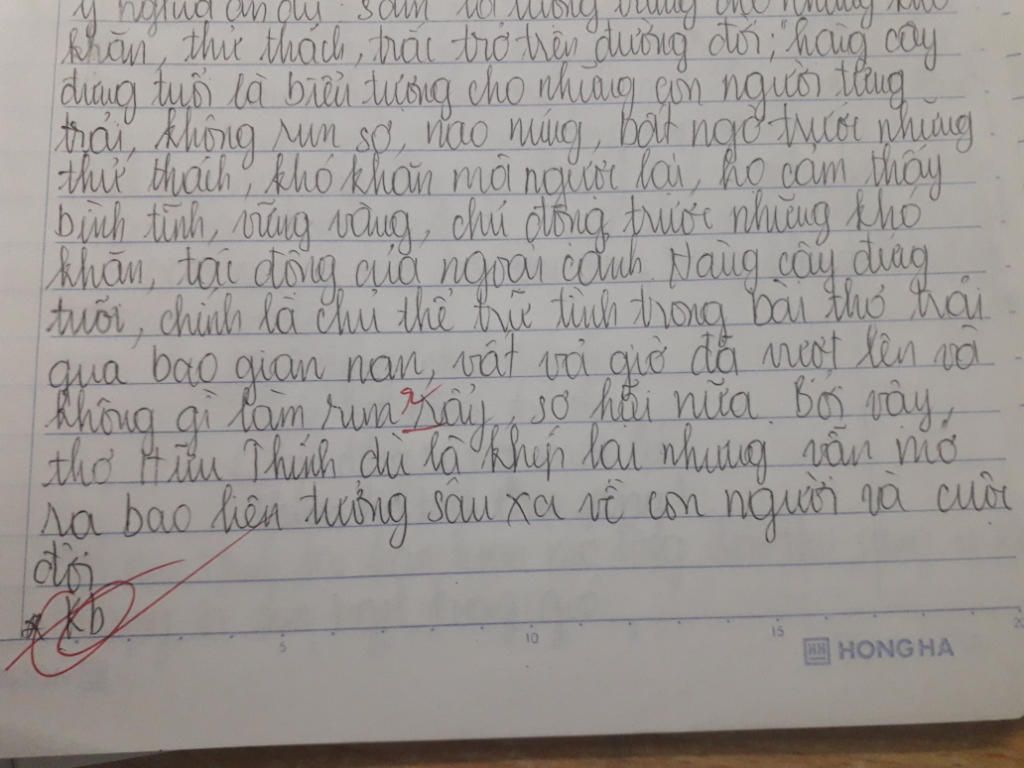 ý nghĩa ẩn dụ: sấm là tượng trưng cho những khó
khăn, thử thách, trắc trở trên đường đời; hàng cây
đứng tuổi là biểu tượng cho những con người từng
trải, không run sợ, nao núng, bất ngờ trước những
thử thách, khó khăn mà người lại, họ cảm thấy
bình tĩnh, vững vàng, chủ động trước những khó
khăn, tác động của ngoại cảnh Hàng cây đứng
tuổi, chính là chủ thể trữ tình trong bài thơ trải
qua bao gian nan, vất vả giờ đã vượt lên và
không gì làm rum rẩy, sợ hãi nữa Bởi vậy,
thơ Hữu Thỉnh dù là khép lại nhưng vẫn mở
ra bao liên tưởng sâu xa về con người và cuộc
đời
* kb
5 10 15 20
HONG HA